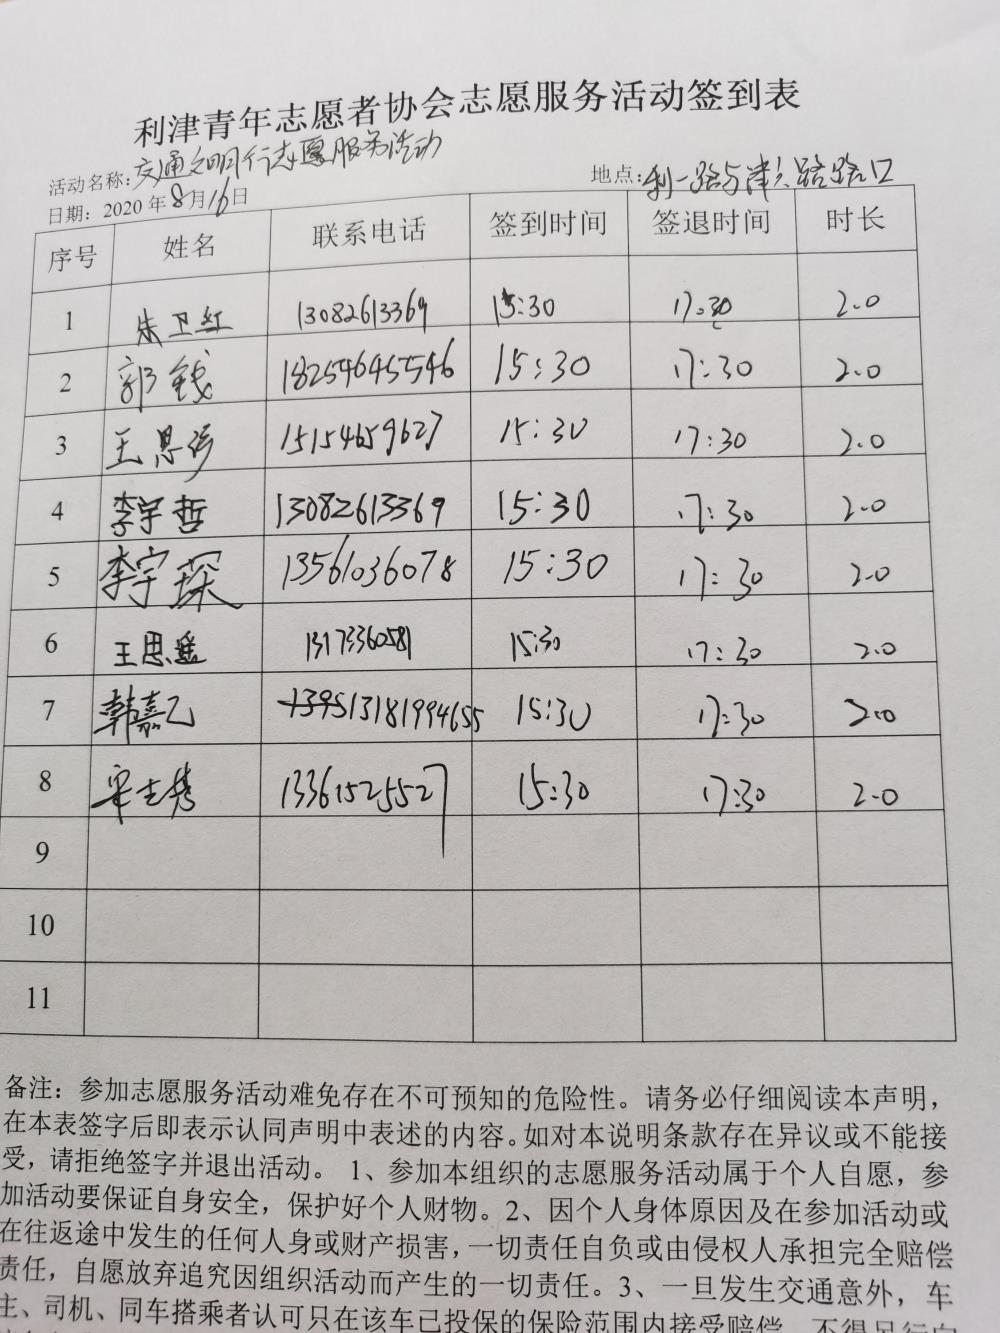 利津青年志愿者协会志愿服务活动签到表
活动名称：交通文明行志愿服务活动
地点：利一路与津六路路口
日期：2020年8月16日
序号 姓名 联系电话 签到时间 签退时间 时长
1 朱卫红 13082613369 15:30 17:30 2.0
2 郭钱 18254645546 15:30 17:30 2.0
3 王思 15154659627 15:30 17:30 2.0
4 李宇哲 13082613369 15:30 17:30 2.0
5 李宇琛 13561036078 15:30 17:30 2.0
6 王思遥 13173360581 15:30 17:30 2.0
7 韩嘉乙 13181994655 15:30 17:30 2.0
8 宋志秀 13361525527 15:30 17:30 2.0
9
10
11
备注：参加志愿服务活动难免存在不可预知的危险性。请务必仔细阅读本声明，
在本表签字后即表示认同声明中表述的内容。如对本说明条款存在异议或不能接
受，请拒绝签字并退出活动。1、参加本组织的志愿服务活动属于个人自愿，参
加活动要保证自身安全，保护好个人财物。2、因个人身体原因及在参加活动或
在往返途中发生的任何人身或财产损害，一切责任自负或由侵权人承担完全赔偿
责任，自愿放弃追究因组织活动而产生的一切责任。3、一旦发生交通意外，车
主、司机、同车搭乘者认可只在该车已投保的保险范围内接受赔偿，不得另行向